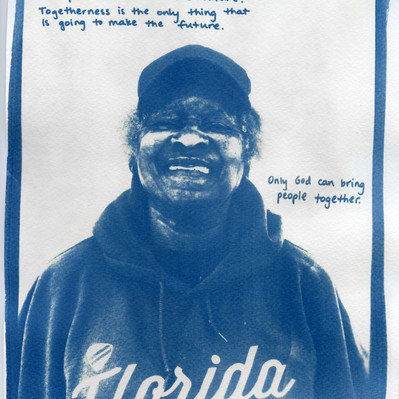 Togetherness is the only thing that
is going to make the future.
Only God can bring
people together.
Florida